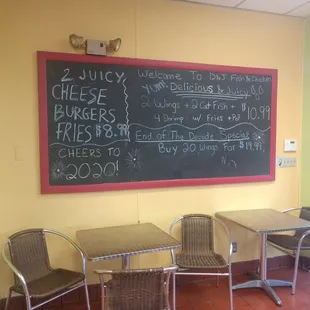 2 JUICY
CHEESE
BURGERS
FRIES $8.99
CHEERS TO
2020!
Welcome To D&J Fish & Chicken
Yum Delicious & Juicy
2 Wings + 2 Cat Fish +
4 Shrimp w/ Fries + Pop
$10.99
End of The Decade Special
Buy 20 Wings For $19.99